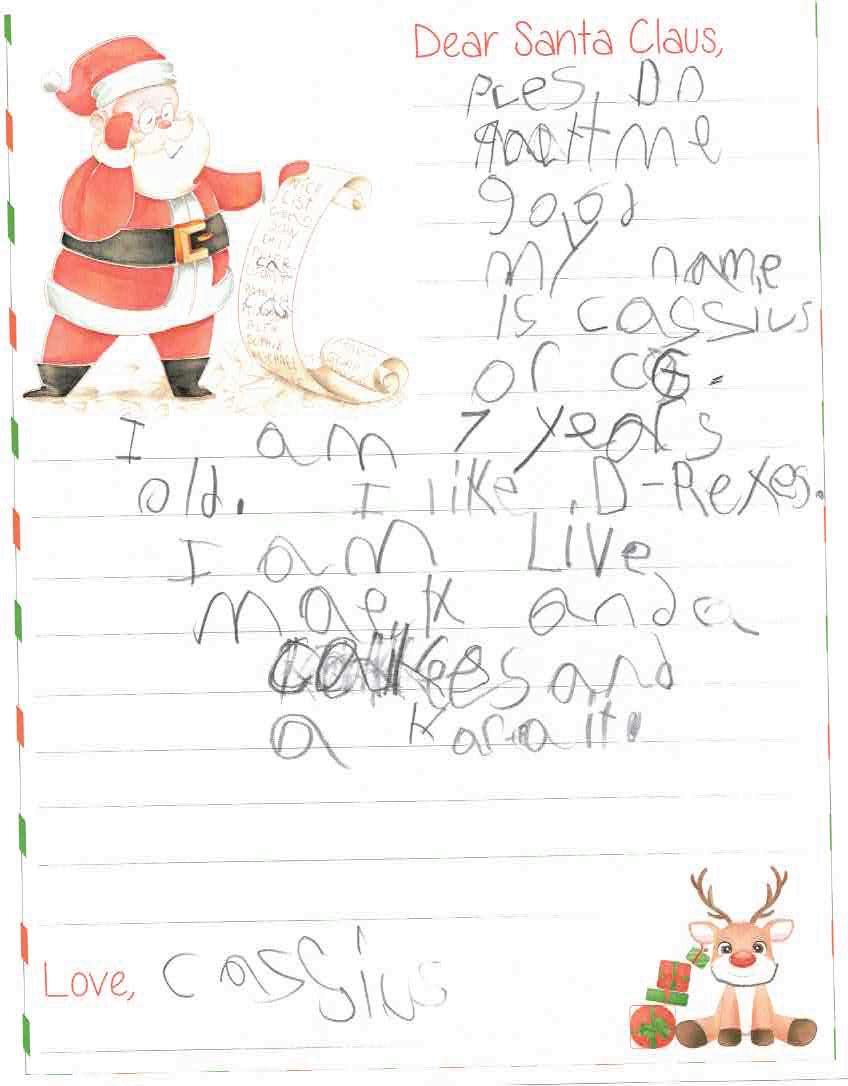 Dear Santa Claus,
Pres, Do
me
good
my name
is cassius
or
I am 7 years
old. I like D-Rexes.
I am Live
maelk and a
cakees and
a Karait.
NICE
LIST
Love, cassius